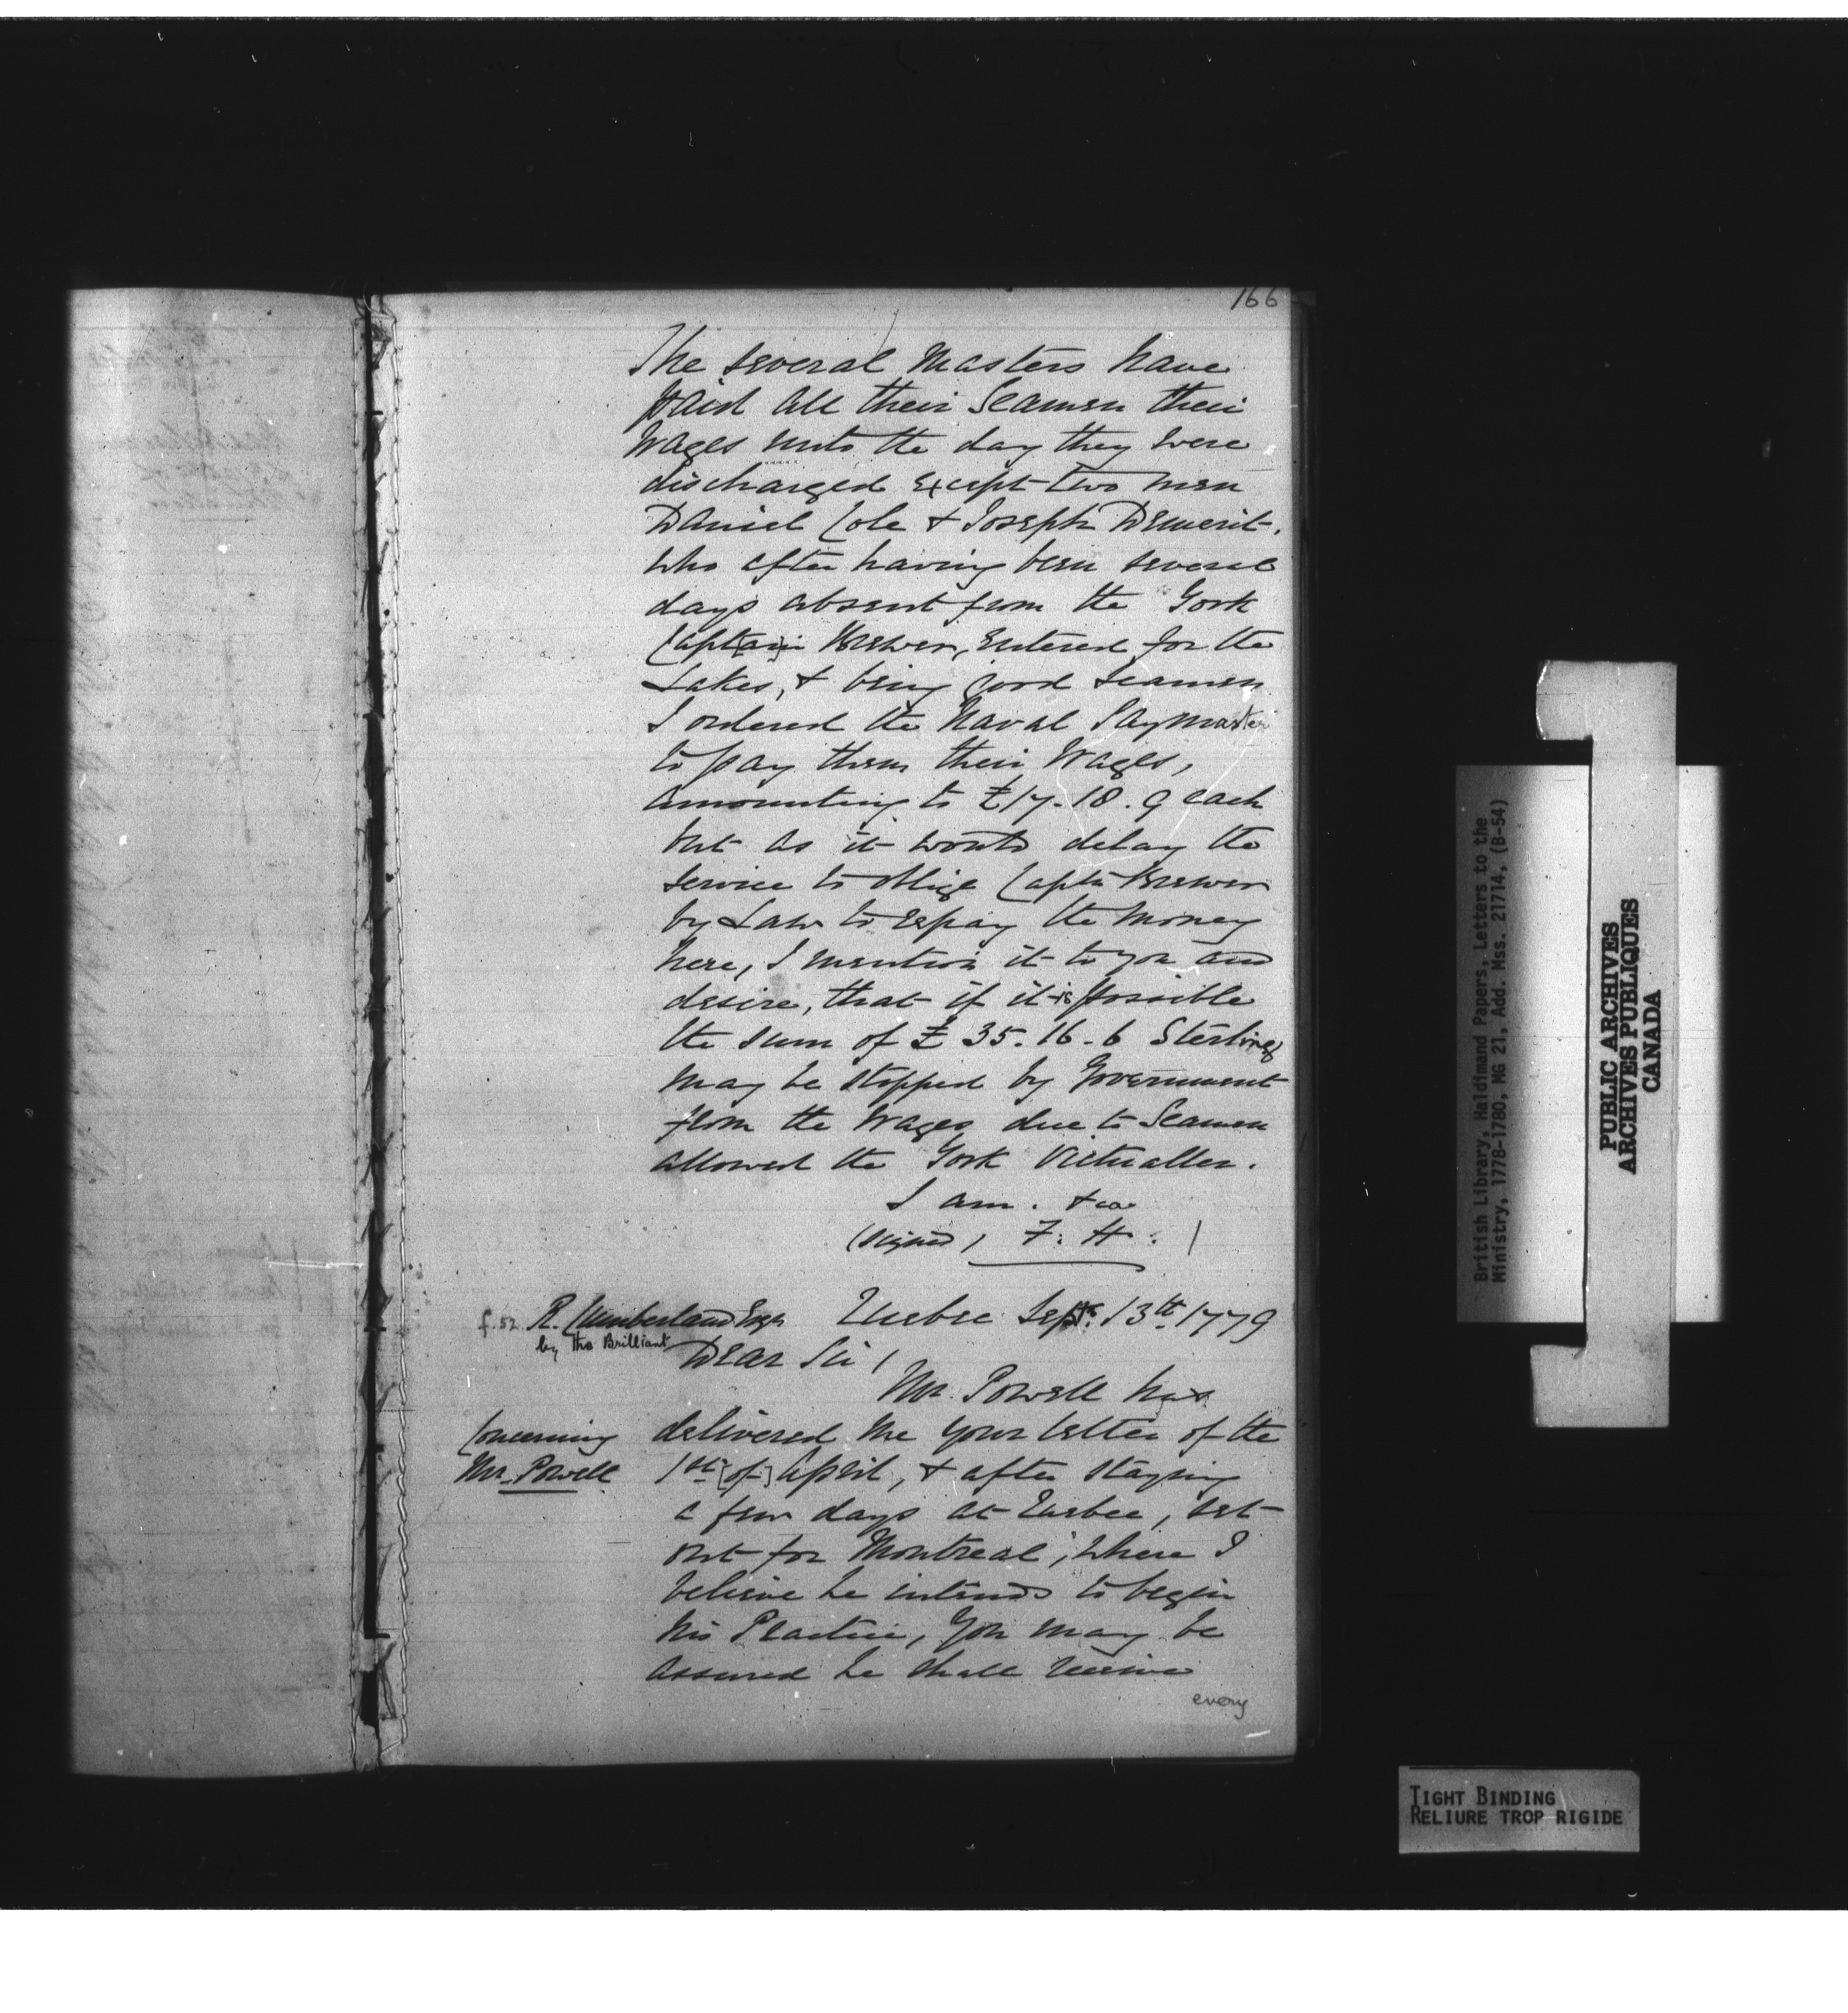 166
The several Masters have
paid all their Seamen their
Wages unto the day they were
discharged except two men
Daniel Cole & Joseph Demerit.
who after having been several
days absent from the York
Capt[ai]n Brewer, entered for the
Lakes, & being good Seamen
I ordered the Naval Paymaster
to pay them their Wages,
amounting to £17.18.9 each
but as it would delay the
service to oblige Captn Brewer
by Law to repay the money
here, I mention it to you and
desire, that if it is possible
the sum of £35.16.6 Sterling
may be stopped by Government
from the Wages due to Seamen
allowed the York Victualler.
I am. &ca
(signed) F: H: /
f.52 R. Cumberland Esqr Quebec Sepr. 13th 1779
by the Brilliant
Dear Sir /
Mr. Powell has
Concerning delivered me your letter of the
Mr. Powell 1st [of] April, & after staying
a few days at Quebec, set
out for Montreal, where I
believe he intends to begin
his Practice, You may be
assured he shall receive
every
British Library, Haldimand Papers, Letters to the
Ministry, 1778-1780, MG 21, Add. Mss. 21714, (B-54)
PUBLIC ARCHIVES
ARCHIVES PUBLIQUES
CANADA
TIGHT BINDING
RELIURE TROP RIGIDE